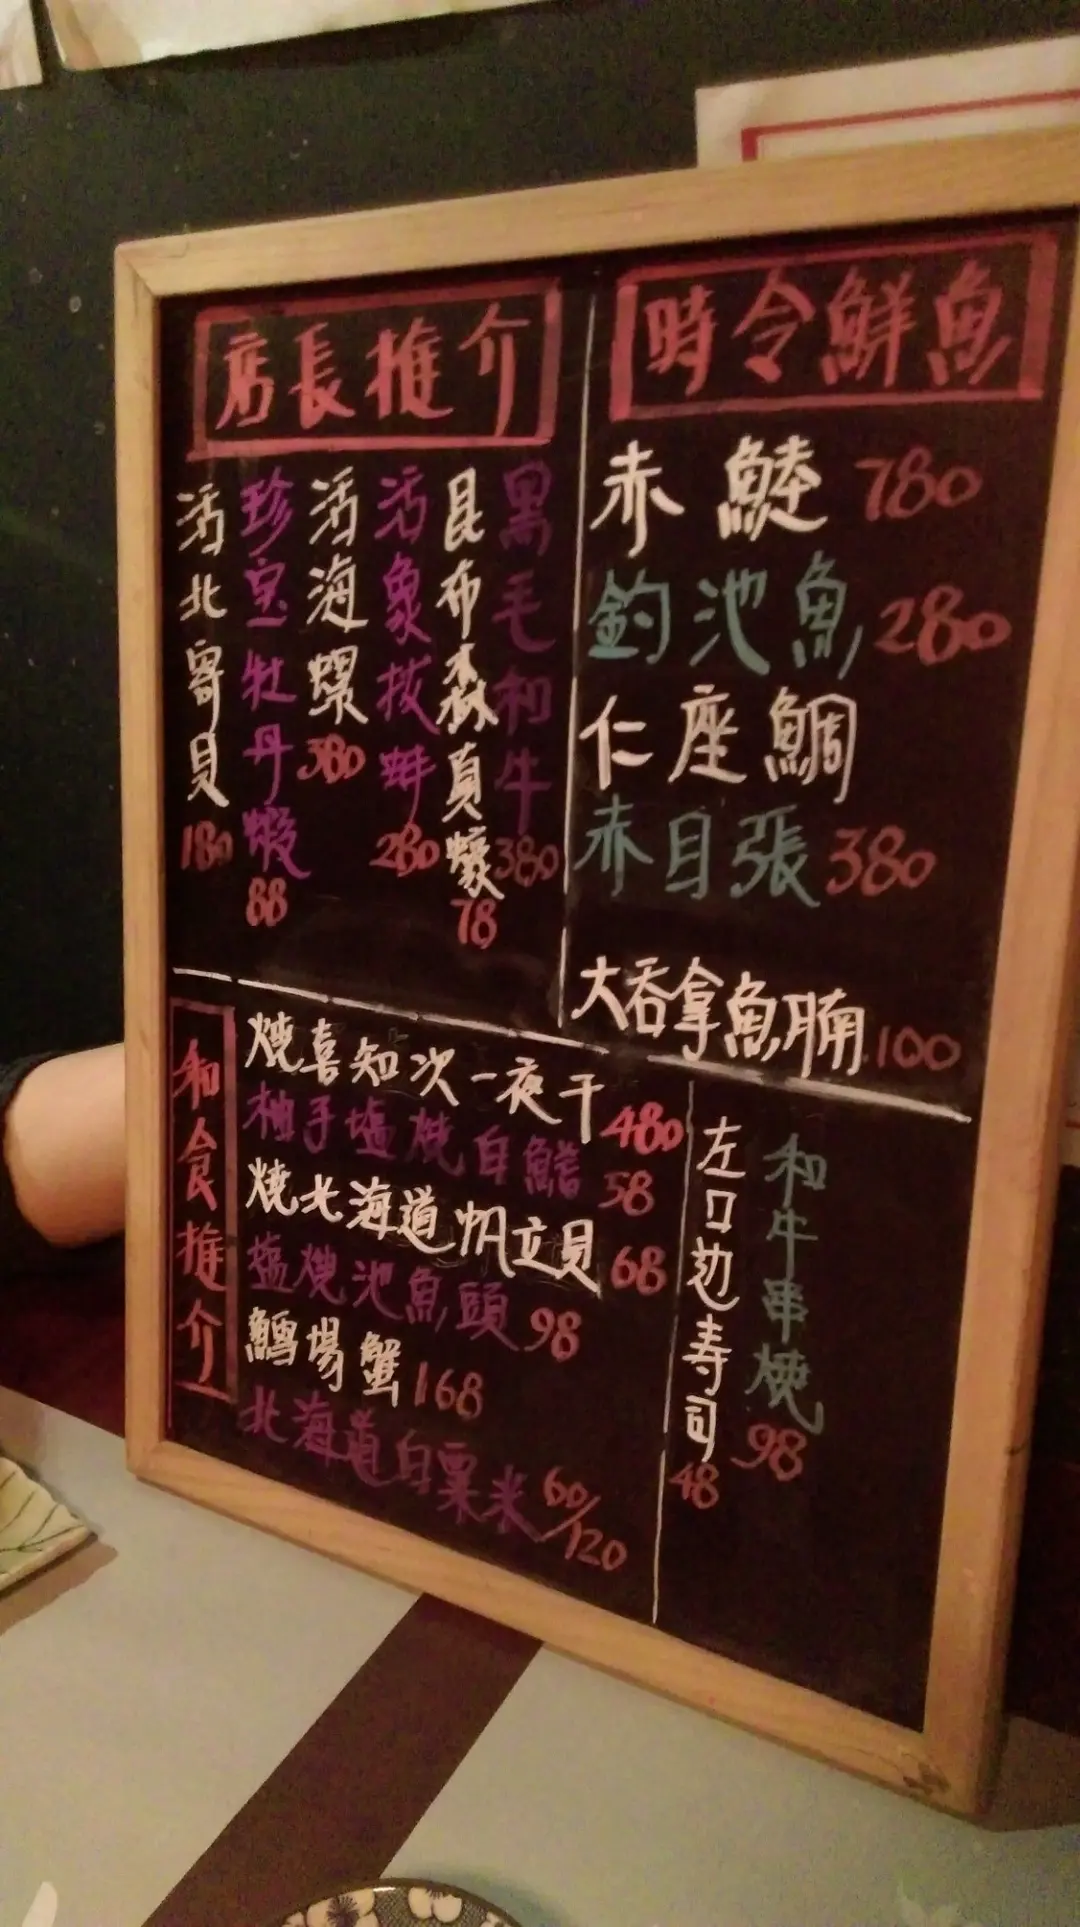 店長推介
活北寄貝 180
珍宝牡丹蝦 88
活海螺 380
活象拔蚌 280
昆布森真蠔 78
黒毛和牛 380
時令鮮魚
赤鯥 780
釣池魚 280
仁座鯛
赤目張 380
大吞拿魚腩 100
和食推介
燒喜知次一夜干 480
柚子塩燒白鱔 58
燒北海道帆立貝 68
塩燒池魚頭 98
鱈場蟹 168
北海道白粟米 60/120
左口边寿司 48
和牛串燒 98